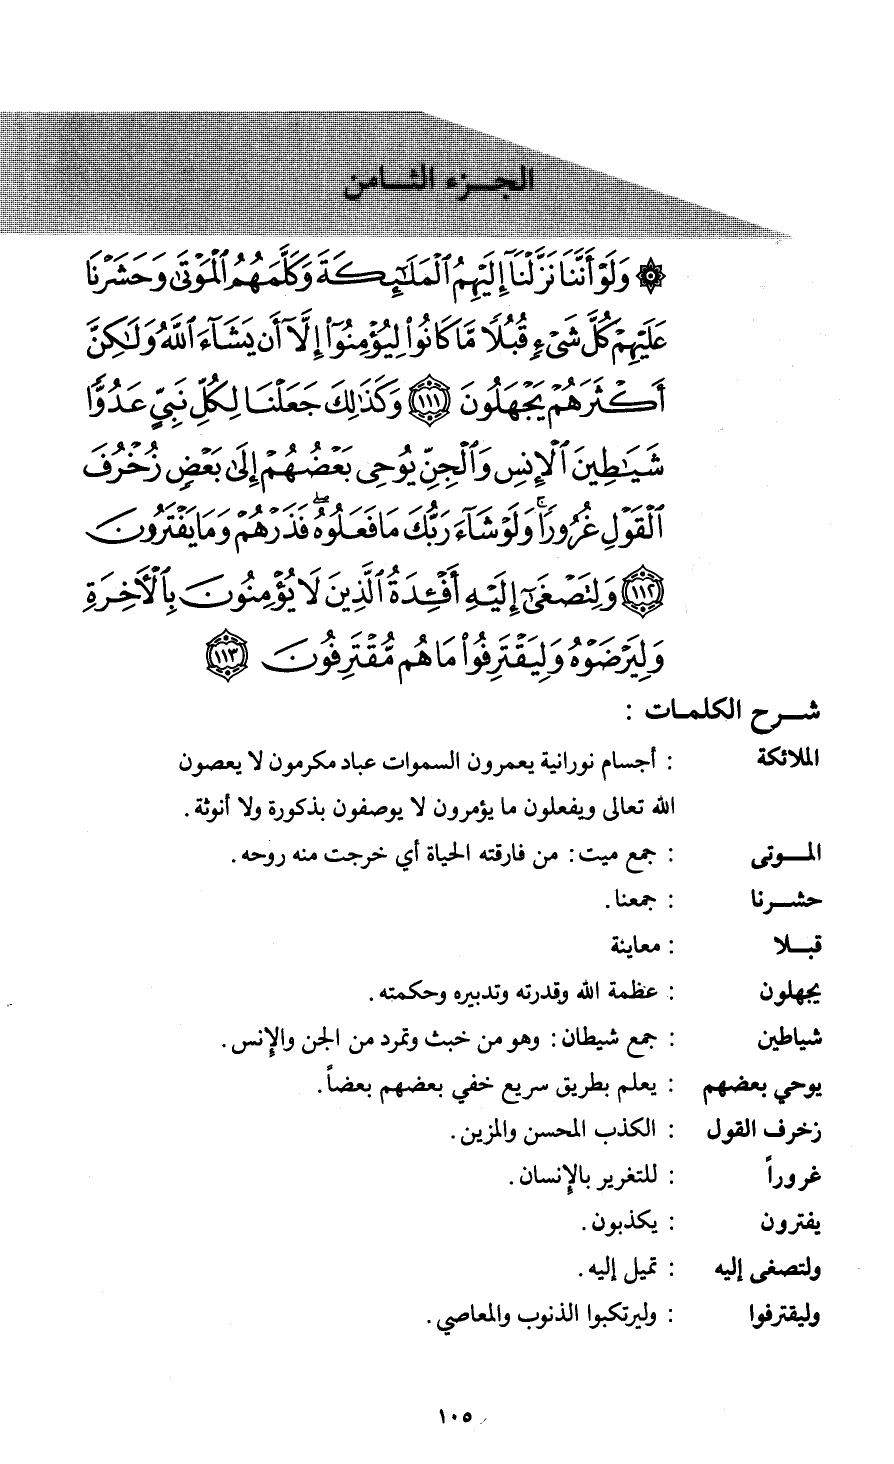 الجـزء الثـامن
۞ وَلَوْ أَنَّنَا نَزَّلْنَآ إِلَيْهِمُ ٱلْمَلَـٰٓئِكَةَ وَكَلَّمَهُمُ ٱلْمَوْتَىٰ وَحَشَرْنَا
عَلَيْهِمْ كُلَّ شَىْءٍ قُبُلًا مَّا كَانُوا۟ لِيُؤْمِنُوٓا۟ إِلَّآ أَن يَشَآءَ ٱللَّهُ وَلَـٰكِنَّ
أَكْثَرَهُمْ يَجْهَلُونَ ﴿١١١﴾ وَكَذَٰلِكَ جَعَلْنَا لِكُلِّ نَبِىٍّ عَدُوًّا
شَيَـٰطِينَ ٱلْإِنسِ وَٱلْجِنِّ يُوحِى بَعْضُهُمْ إِلَىٰ بَعْضٍ زُخْرُفَ
ٱلْقَوْلِ غُرُورًا ۚ وَلَوْ شَآءَ رَبُّكَ مَا فَعَلُوهُ ۖ فَذَرْهُمْ وَمَا يَفْتَرُونَ
﴿١١٢﴾ وَلِتَصْغَىٰٓ إِلَيْهِ أَفْـِٔدَةُ ٱلَّذِينَ لَا يُؤْمِنُونَ بِٱلْـَٔاخِرَةِ
وَلِيَرْضَوْهُ وَلِيَقْتَرِفُوا۟ مَا هُم مُّقْتَرِفُونَ ﴿١١٣﴾
شـرح الكلمـات :
الملائكة : أجسام نورانية يعمرون السموات عباد مكرمون لا يعصون
الله تعالى ويفعلون ما يؤمرون لا يوصفون بذكورة ولا أنوثة .
المـوتى : جمع ميت : من فارقته الحياة أي خرجت منه روحه .
حشـرنا : جمعنا .
قبـلا : معاينة
يجهلون : عظمة الله وقدرته وتدبيره وحكمته .
شياطين : جمع شيطان : وهو من خبث وتمرد من الجن والإنس .
يوحي بعضهم : يعلم بطريق سريع خفي بعضهم بعضاً .
زخرف القول : الكذب المحسن والمزين .
غروراً : للتغرير بالإنسان .
يفترون : يكذبون .
ولتصغى إليه : تميل إليه .
وليقترفوا : وليرتكبوا الذنوب والمعاصي .
١٠٥